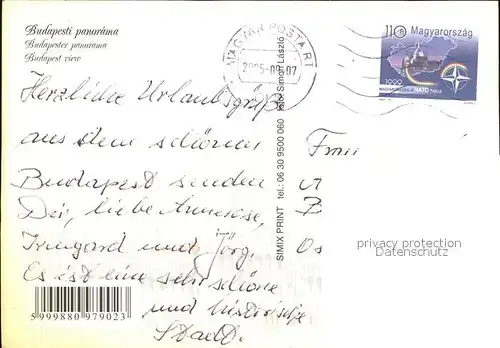 Budapesti panoráma
Budapester panorama
Budapest view
Herzliche Urlaubsgrüße
aus dem schönen
Budapest senden
Dir, liebe Annerose,
Irmgard und Jörg.
Es ist eine sehr schöne
und historische
Stadt.
5999880 979023
SIMIX PRINT tel.: 06 30 9500 060 Simon László
MAGYAR POSTA RT
2005
110 Ft Magyarország
1999
MAGYARORSZÁG A NATO TAGJA
Frau
privacy protection
Datenschutz